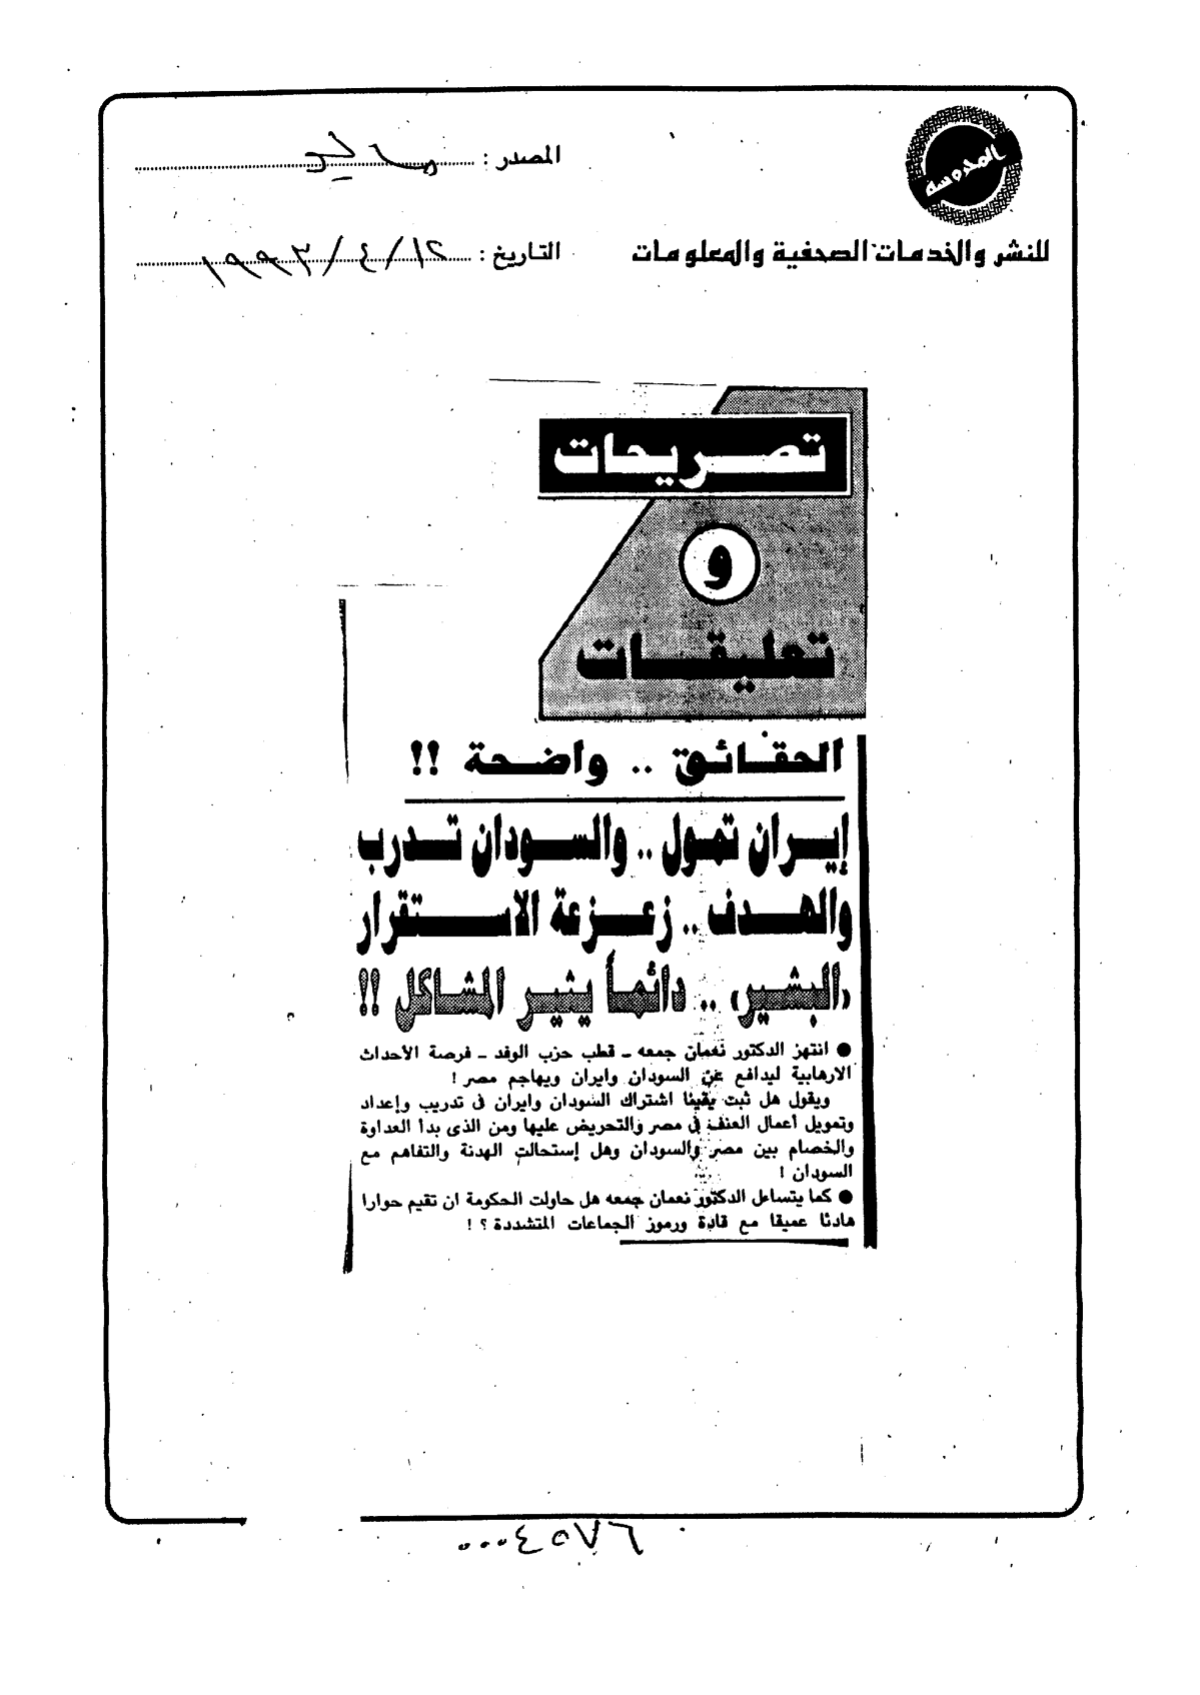 المحروسة
للنشر والخدمات الصحفية والمعلومات
المصدر :
التاريخ : ١٢/٤/١٩٩٣
تصريحات
و
تعليقات
الحقائق .. واضحة !!
إيران تمول .. والسودان تدرب
والهدف .. زعزعة الاستقرار
«البشير» .. دائماً يثير المشاكل !!
● انتهز الدكتور نعمان جمعه ـ قطب حزب الوفد ـ فرصة الأحداث
الارهابية ليدافع عن السودان وايران ويهاجم مصر !
ويقول هل ثبت يقينا اشتراك السودان وايران فى تدريب وإعداد
وتمويل أعمال العنف فى مصر والتحريض عليها ومن الذى بدأ العداوة
والخصام بين مصر والسودان وهل إستحالت الهدنة والتفاهم مع
السودان !
● كما يتساءل الدكتور نعمان جمعه هل حاولت الحكومة ان تقيم حوارا
هادئا عميقا مع قادة ورموز الجماعات المتشددة ؟ !